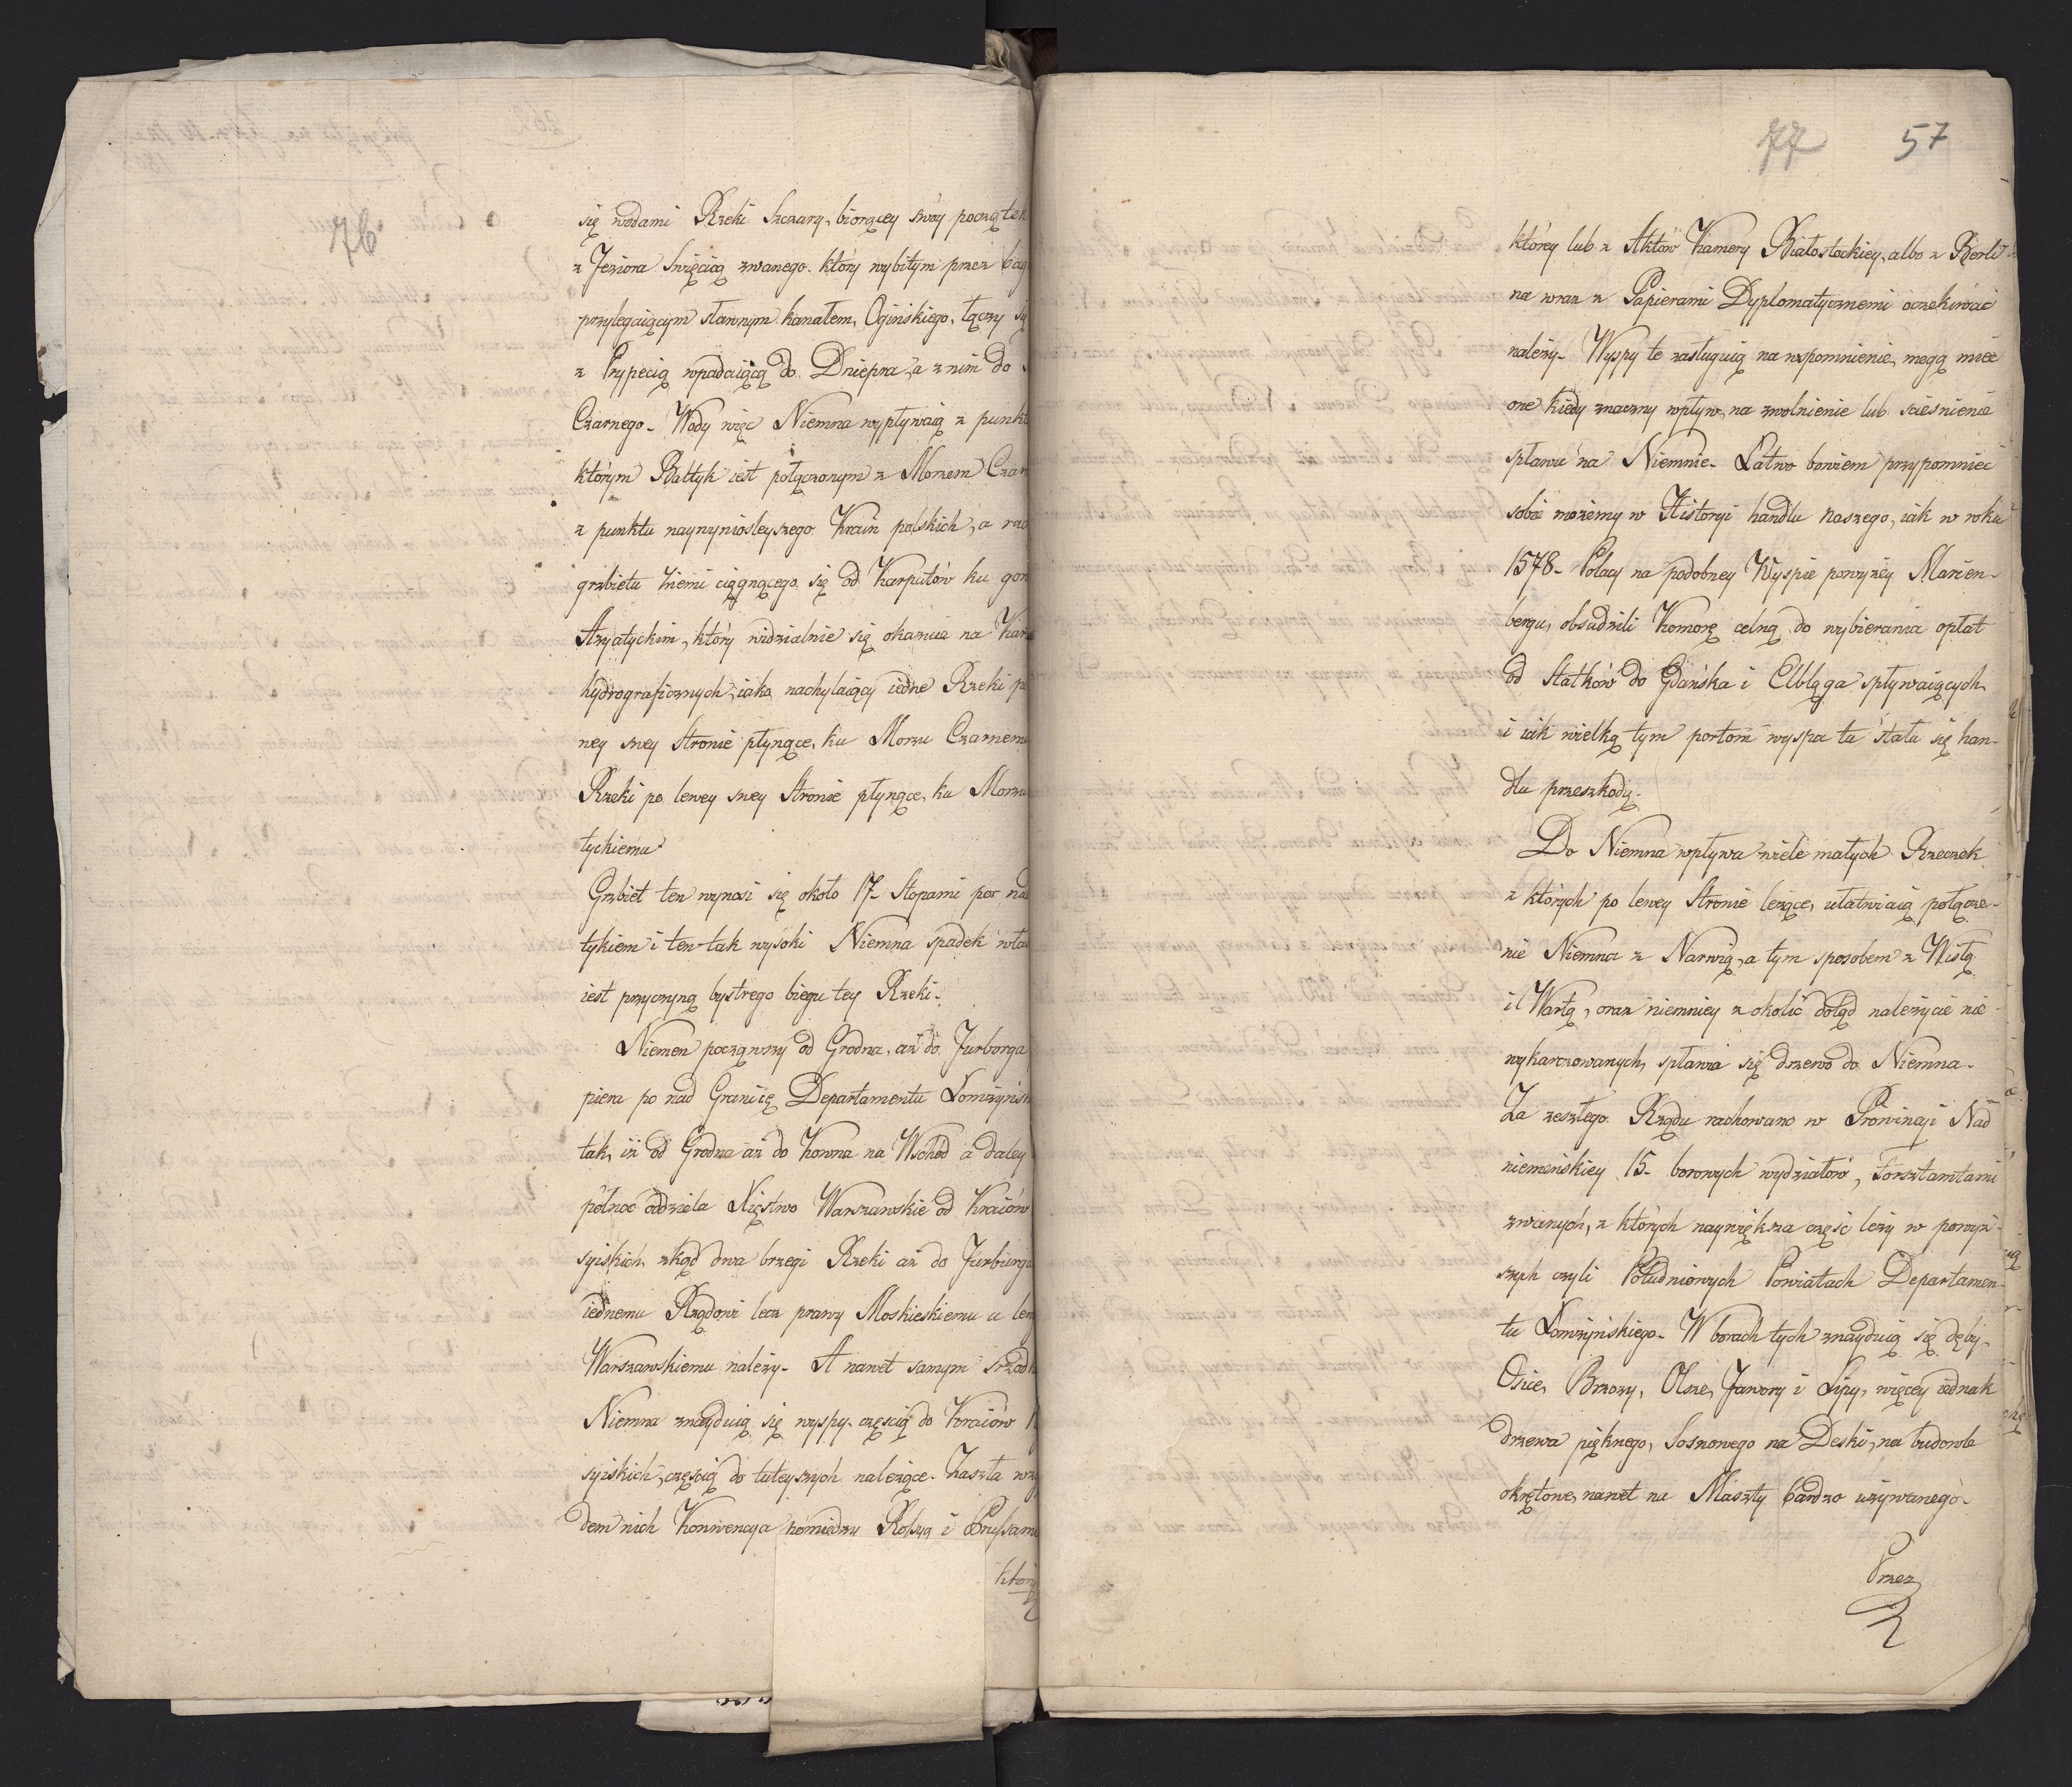 76
się wodami Rzeki Szczary, biorącey swóy począte
z Jeziora Święcicą zwanego. który wybitym przez bag
przylegaiącym sławnym kanałem, Ogińskiego, łączy się
z Prypecią wpadaiącą do Dniepra, a z nim do
Czarnego. Wody więc Niemna wypływaią z punkt
którym Bałtyk iest połączonym z Morzem Czar
z punktu naywyniosleyszego Krain polskich, a rac
grzbietu Ziemi ciągnącego się od Karpatów ku gor
Azyatyckim, który widzialnie się okazuie na Kar
hydrograficznych, iako nachylaiący iedne Rzeki pr
ney swey stronie płynące, ku Morzu Czarnem
Rzeki po lewey swey stronie płynące, ku Morzu
tyckiemu.
Grzbiet ten wynosi się około 17. Stopami par. nad
tykiem i ten tak wysoki Niemna spadek wła
iest przyczyną bystrego biegu tey Rzeki.
Niemen począwszy od Grodna, aż do Jurborga
piera po nad Granicę Departamentu Łomżyńsk
tak, iż od Grodna aż do Kowna na Wschód a daley
północ oddziela Xięstwo Warszawskie od Kraiów
syiskich zkąd dwa brzegi Rzeki aż do Jurburga
iednemu Rządowi lecz prawy Moskieskiemu a lew
Warszawskiemu należy. A nawet samym środk
Niemna znayduią się wyspy, częscią do Kraiów R
syiskich, częscią do tuteyszych należące. Zaszła wzg
dem nich Konwencya pomiędzy Rossyą i Prussami
któr
77 57
którey lub z Aktów Kamery Białostockiey, albo z Berli-
na wraz z Papierami Dyplomatycznemi oczekiwać
należy. Wyspy te zasługuią na wspomnienie, mogą mieć
one kiedy znaczny wpływ, na zwolnienie lub ścieśnienie
spławu na Niemnie. Łatwo bowiem przypomnieć
sobie możemy w Historyi handlu naszego, iak w roku
1578. Polacy na podobney Wyspie powyżey Marien-
bergu, obsadzili Komorę celną do wybierania opłat
od Statków do Gdańska i Elbląga spływaiących,
i iak wielką tym portom wyspa ta stała się han-
dlu przeszkodą.
Do Niemna wpływa wiele małych Rzeczek
z których po lewey Stronie leżące, ułatwiaią połącze-
nie Niemna z Narwią, a tym sposobem z Wisłą
i Wartą, oraz niemniey z okolic dotąd należycie nie
wykarczowanych, spławia się drzewo do Niemna.
Za zeszłego Rządu rachowano w Prowincyi Nad
niemeńskiey 15. borowych wydziałów, Forsztamtami
zwanych, z których naywiększa część leży w powyż-
szych czyli Południowych Powiatach Departamen-
tu Łomżyńskiego. W borach tych znayduią się dęby,
Osice, Brzozy, Olsze, Jawory i Lipy, więcey iednak
drzewa pięknego, Sosnowego na Deski, na budowle
okrętowe, nawet na Maszty bardzo używanego.
Przez